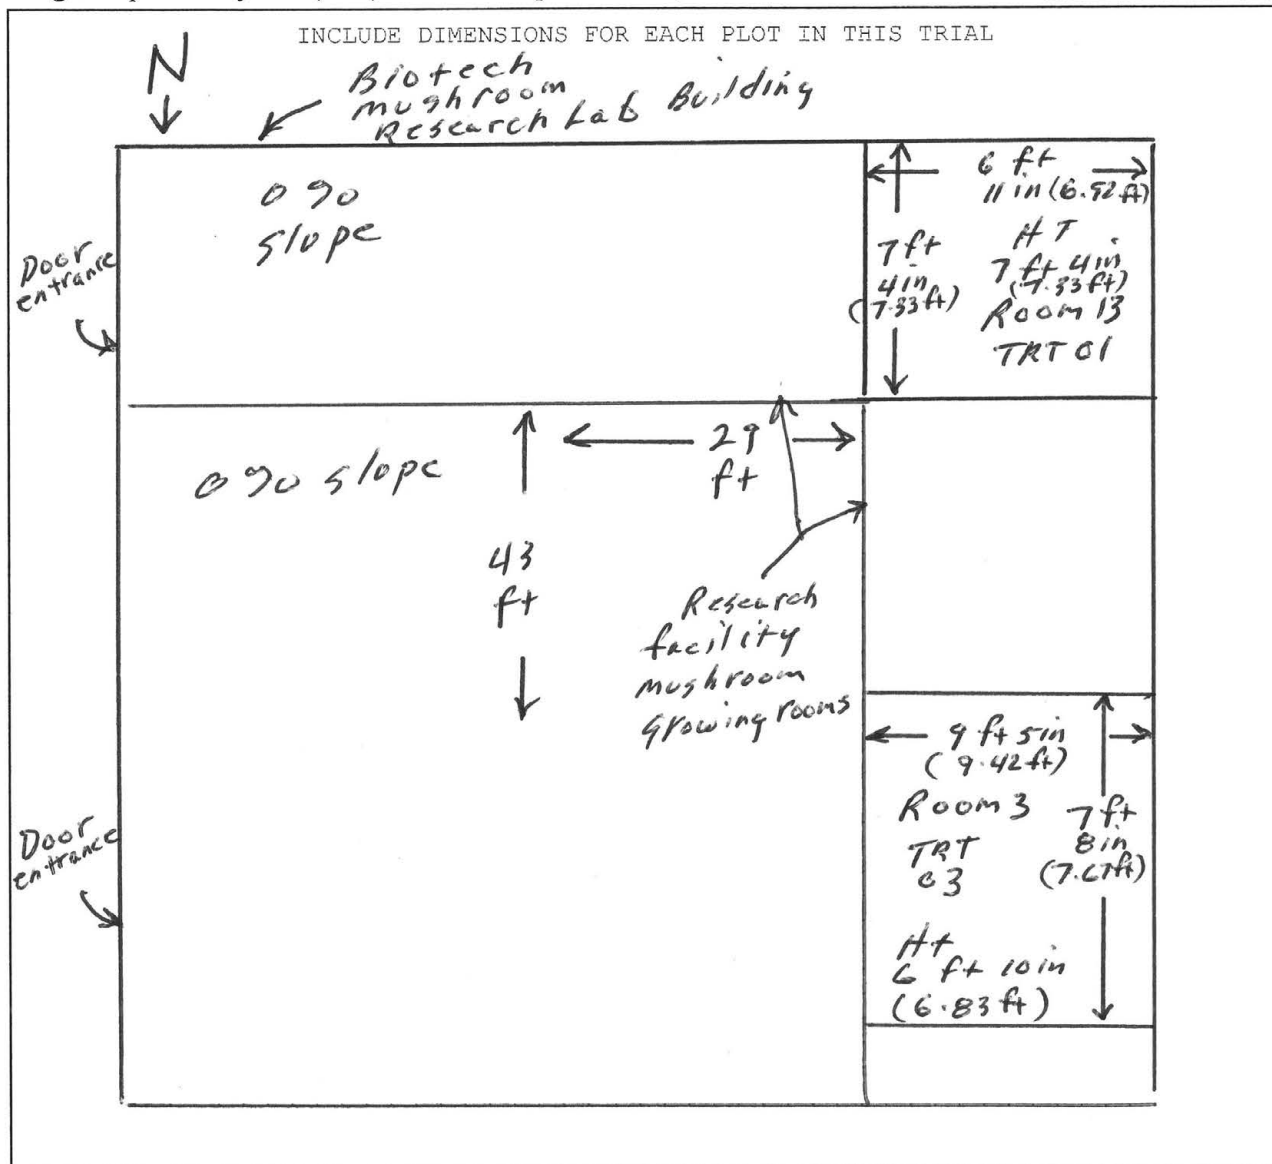 INCLUDE DIMENSIONS FOR EACH PLOT IN THIS TRIAL
N
Biotech
mushroom
Research Lab Building
0 % slope
Door
entrance
6 ft
11 in (6.92 ft)
7 ft
4 in
(7.33 ft)
HT
7 ft 4 in
(7.33 ft)
Room 13
TRT 01
0 % slope
29
ft
43
ft
Research
facility
mushroom
Growing rooms
9 ft 5 in
(9.42 ft)
Room 3
TRT
03
7 ft
8 in
(7.67 ft)
Ht
6 ft 10 in
(6.83 ft)
Door
entrance